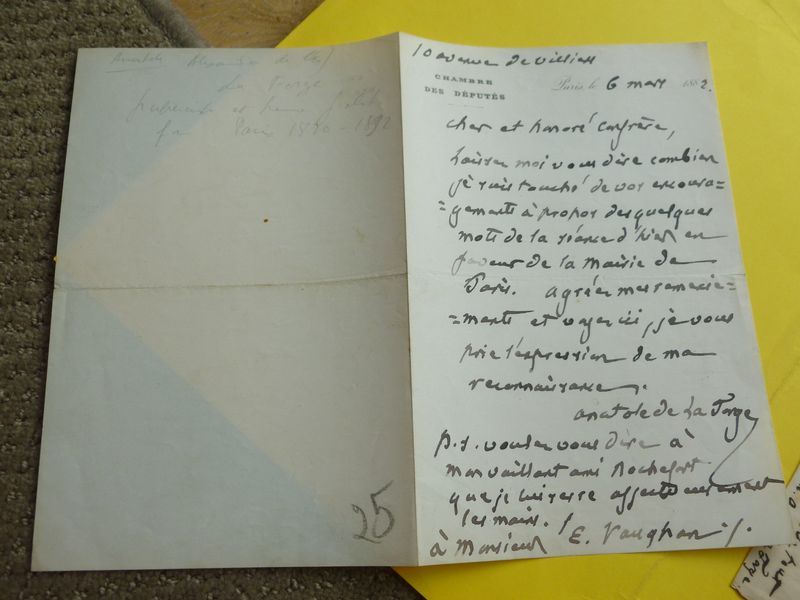 Anatole Alexandre de
La Forge
Paris 1820-1892
25
10 avenue de villiers
CHAMBRE
DES DÉPUTÉS
Paris, le 6 mars 1882.
cher et honoré confrère,
laissez moi vous dire combien
je suis touché de vos encoura=
=gements à propos des quelques
mots de la séance d'hier en
faveur de la Mairie de
Paris. agréez mes remercie=
=ments et voyez ici, je vous
prie l'expression de ma
reconnaissance.
anatole de La Forge
p.s. voulez vous dire à
mon vaillant ami Rochefort
que je lui serre affectueusement
les mains.
à Monsieur E. Vaughan